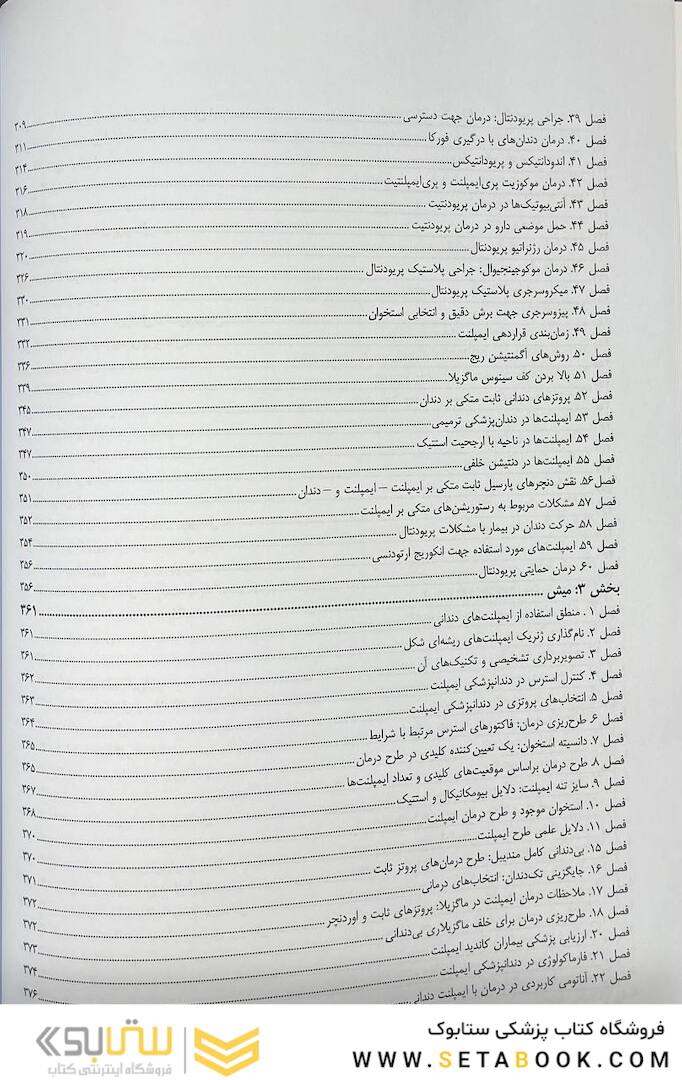 فصل ۳۹. جراحی پریودنتال: درمان جهت دسترسی ۳۰۹
فصل ۴۰. درمان دندان‌های با درگیری فورکا ۳۱۱
فصل ۴۱. اندودانتیکس و پریودانتیکس ۳۱۴
فصل ۴۲. درمان موکوزیت پری‌ایمپلنت و پری‌ایمپلنتیت ۳۱۶
فصل ۴۳. آنتی‌بیوتیک‌ها در درمان پریودنتیت ۳۱۸
فصل ۴۴. حمل موضعی دارو در درمان پریودنتیت ۳۱۹
فصل ۴۵. درمان رژنراتیو پریودنتال ۳۲۰
فصل ۴۶. درمان موکوجینجیوال: جراحی پلاستیک پریودنتال ۳۲۶
فصل ۴۷. میکروسرجری پلاستیک پریودنتال ۳۳۰
فصل ۴۸. پیزوسرجری جهت برش دقیق و انتخابی استخوان ۳۳۱
فصل ۴۹. زمان‌بندی قراردهی ایمپلنت ۳۳۲
فصل ۵۰. روش‌های آگمنتیشن ریج ۳۳۶
فصل ۵۱. بالا بردن کف سینوس ماگزیلا ۳۳۹
فصل ۵۲. پروتزهای دندانی ثابت متکی بر دندان ۳۴۵
فصل ۵۳. ایمپلنت‌ها در دندان‌پزشکی ترمیمی ۳۴۷
فصل ۵۴. ایمپلنت‌ها در ناحیه با ارجحیت استتیک ۳۴۷
فصل ۵۵. ایمپلنت‌ها در دنتیشن خلفی ۳۵۰
فصل ۵۶. نقش دنچرهای پارسیل ثابت متکی بر ایمپلنت – ایمپلنت و – دندان ۳۵۱
فصل ۵۷. مشکلات مربوط به رستوریشن‌های متکی بر ایمپلنت ۳۵۲
فصل ۵۸. حرکت دندان در بیمار با مشکلات پریودنتال ۳۵۴
فصل ۵۹. ایمپلنت‌های مورد استفاده جهت انکوریج ارتودنسی ۳۵۶
فصل ۶۰. درمان حمایتی پریودنتال ۳۵۶
بخش ۳: میش ۳۶۱
فصل ۱. منطق استفاده از ایمپلنت‌های دندانی ۳۶۱
فصل ۲. نام‌گذاری ژنریک ایمپلنت‌های ریشه‌ای شکل ۳۶۱
فصل ۳. تصویربرداری تشخیصی و تکنیک‌های آن ۳۶۲
فصل ۴. کنترل استرس در دندانپزشکی ایمپلنت ۳۶۳
فصل ۵. انتخاب‌های پروتزی در دندانپزشکی ایمپلنت ۳۶۴
فصل ۶. طرح‌ریزی درمان: فاکتورهای استرس مرتبط با شرایط ۳۶۵
فصل ۷. دانسیته استخوان: یک تعیین‌کننده کلیدی در طرح درمان ۳۶۵
فصل ۸. طرح درمان براساس موقعیت‌های کلیدی و تعداد ایمپلنت‌ها ۳۶۷
فصل ۹. سایز تنه ایمپلنت: دلایل بیومکانیکال و استتیک ۳۶۸
فصل ۱۰. استخوان موجود و طرح درمان ایمپلنت ۳۷۰
فصل ۱۱. دلایل علمی طرح ایمپلنت ۳۷۰
فصل ۱۵. بی‌دندانی کامل مندیبل: طرح درمان‌های پروتز ثابت ۳۷۱
فصل ۱۶. جایگزینی تک‌دندان: انتخاب‌های درمانی ۳۷۲
فصل ۱۷. ملاحظات درمان ایمپلنت در ماگزیلا: پروتزهای ثابت و اوردنچر ۳۷۲
فصل ۱۸. طرح‌ریزی درمان برای خلف ماگزیلاری بی‌دندانی ۳۷۳
فصل ۲۰. ارزیابی پزشکی بیماران کاندید ایمپلنت ۳۷۴
فصل ۲۱. فارماکولوژی در دندانپزشکی ایمپلنت ۳۷۶
فصل ۲۲. آناتومی کاربردی در درمان با ایمپلنت دندانی
فروشگاه کتاب پزشکی ستابوک
WWW.SETABOOK.COM
ستابوک
فروشگاه اینترنتی کتاب